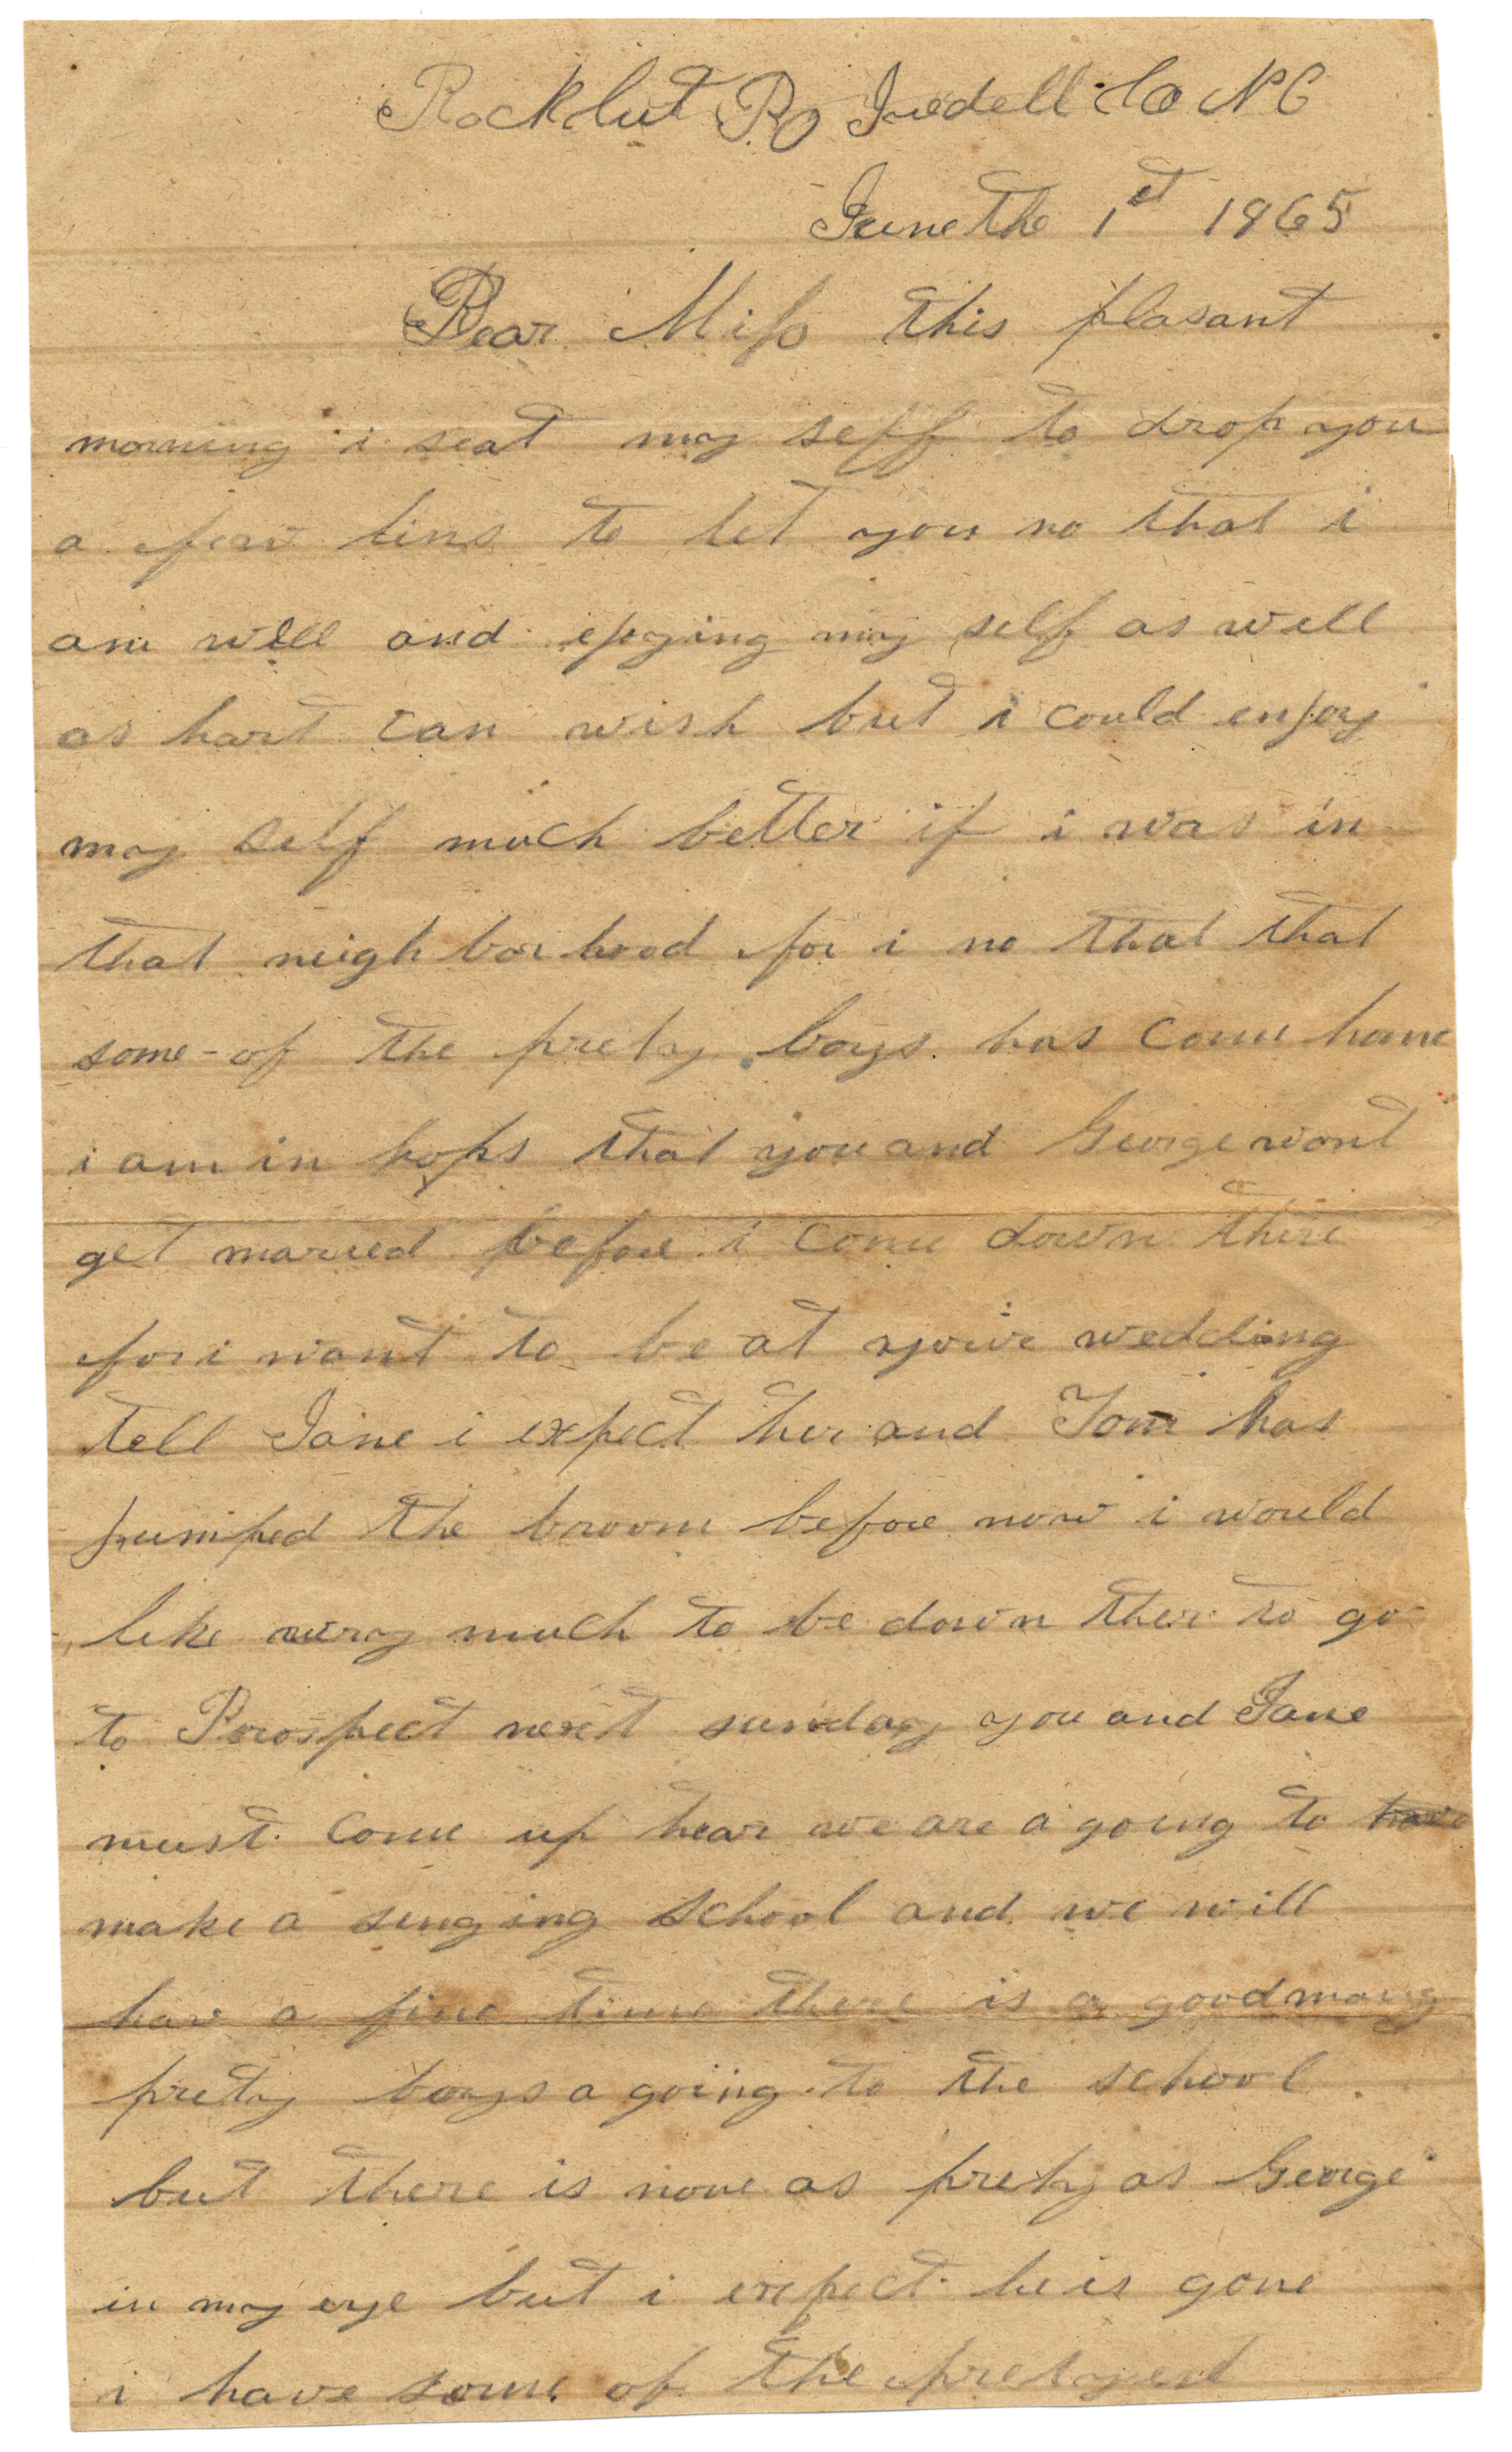 Rock Cut PO Iredell Co NC
June the 1st 1865
Dear Miss this plasant
morning i seat my seff to drop you
a few lins to let you no that i
am well and ejoying my self as well
as hart can wish but i could enjoy
my self much better if i was in
that neigh bor hood for i no that that
some of the prety boys has come home
i am in hops that you and George wont
get marued before i come down there
for i want to be at youre wedding
tell Jane i expect her and Tom has
jumped the broom before now i would
like very much to be down ther to go
to Prospect next sunday you and Jane
must come up hear we are a going to have
make a singing school and we will
hav a fine time there is a good many
prety boys a going to the school
but there is none as prety as George
in my eye but i expect he is gone
i have some of the pretyest